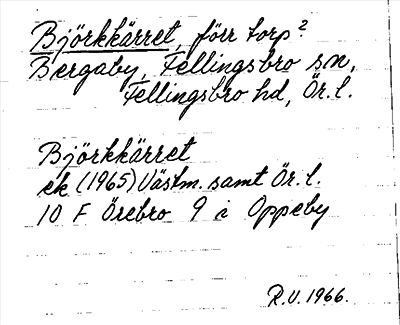 Björkkärret, förr torp?
Bergaby, Fellingsbro sn,
Fellingsbro hd, Ör. l.
Björkkärret
ek (1965) Västm. samt Ör. l.
10 F Örebro 9 i Oppeby
R.V. 1966.